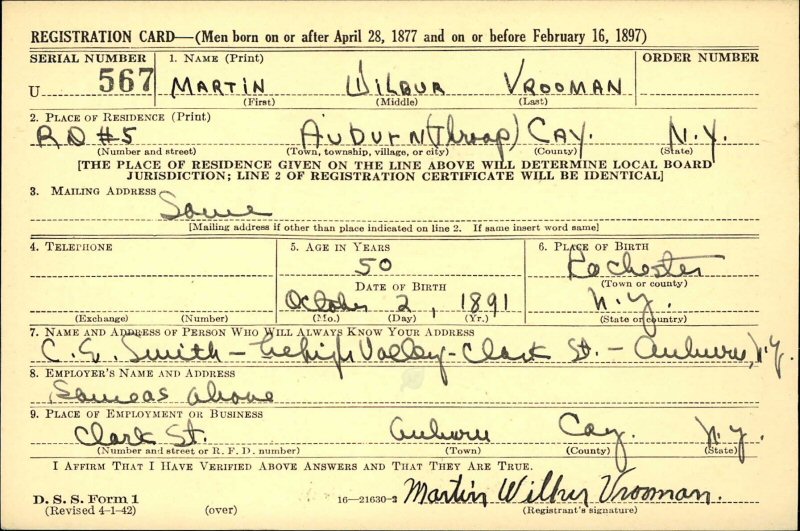 REGISTRATION CARD—(Men born on or after April 28, 1877 and on or before February 16, 1897)
SERIAL NUMBER 1. NAME (Print) ORDER NUMBER
U 567 MARTIN WILBUR VROOMAN
(First) (Middle) (Last)
2. PLACE OF RESIDENCE (Print)
RD #5 AUBURN (Throop) CAY. N.Y.
(Number and street) (Town, township, village, or city) (County) (State)
[THE PLACE OF RESIDENCE GIVEN ON THE LINE ABOVE WILL DETERMINE LOCAL BOARD
JURISDICTION; LINE 2 OF REGISTRATION CERTIFICATE WILL BE IDENTICAL]
3. MAILING ADDRESS
Same
[Mailing address if other than place indicated on line 2. If same insert word same]
4. TELEPHONE 5. AGE IN YEARS 6. PLACE OF BIRTH
50 Rochester
(Town or county)
DATE OF BIRTH
October 2, 1891 N.Y.
(Exchange) (Number) (Mo.) (Day) (Yr.) (State or country)
7. NAME AND ADDRESS OF PERSON WHO WILL ALWAYS KNOW YOUR ADDRESS
C. E. Smith — Lehigh Valley - Clark St. — Auburn, N.Y.
8. EMPLOYER'S NAME AND ADDRESS
Same as above
9. PLACE OF EMPLOYMENT OR BUSINESS
Clark St. Auburn Cay. N.Y.
(Number and street or R. F. D. number) (Town) (County) (State)
I AFFIRM THAT I HAVE VERIFIED ABOVE ANSWERS AND THAT THEY ARE TRUE.
D. S. S. Form 1
(Revised 4-1-42) (over) 16—21630-2 Martin Wilbur Vrooman.
(Registrant's signature)